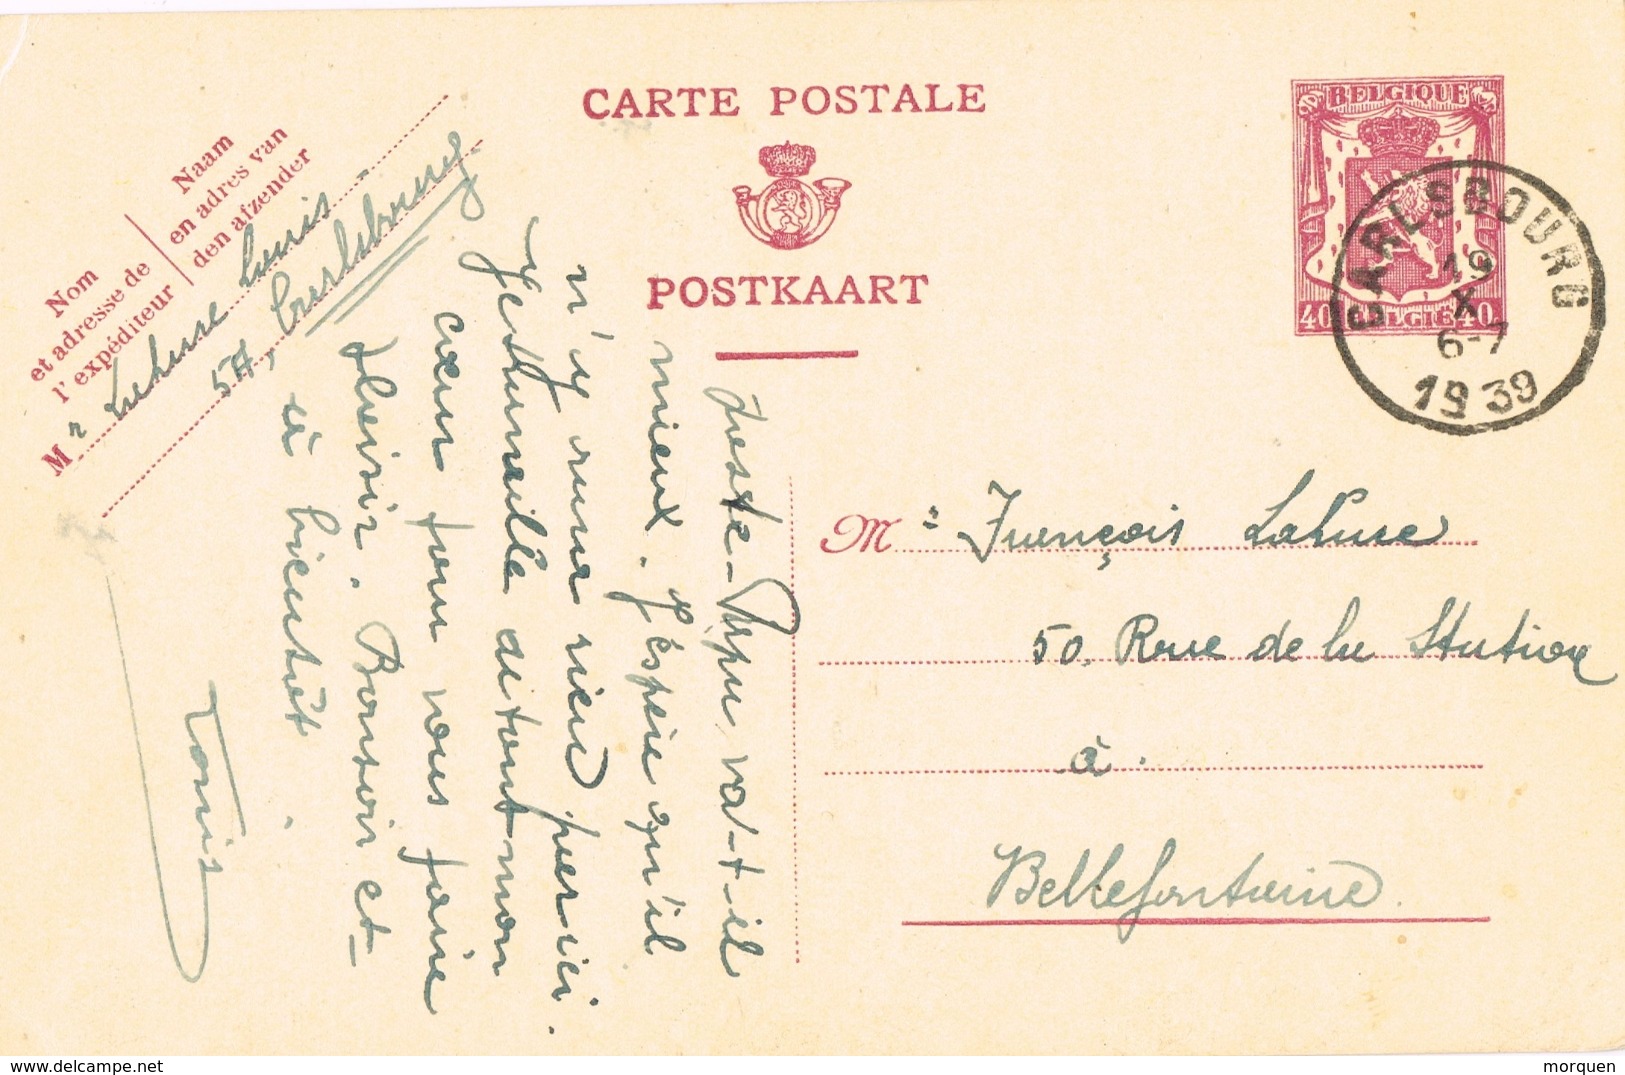 CARTE POSTALE
POSTKAART
Naam
en adres van
den afzender
Nom
et adresse de
l'expéditeur
Mr Lahure Louis
5A, Carlsbourg
BELGIQUE
40 BELGIE 40
CARLSBOURG
19
X
6-7
1939
Mr François Lahure
50, Rue de la Station
à
Bellefontaine.
Poste-Papa va-t-il
mieux. J'espère qu'il
n'y aura rien par ici.
Je travaille de tout mon
cœur pour vous faire
plaisir. Bonsoir et
à bientôt.
Louis
www.delcampe.net
morquen